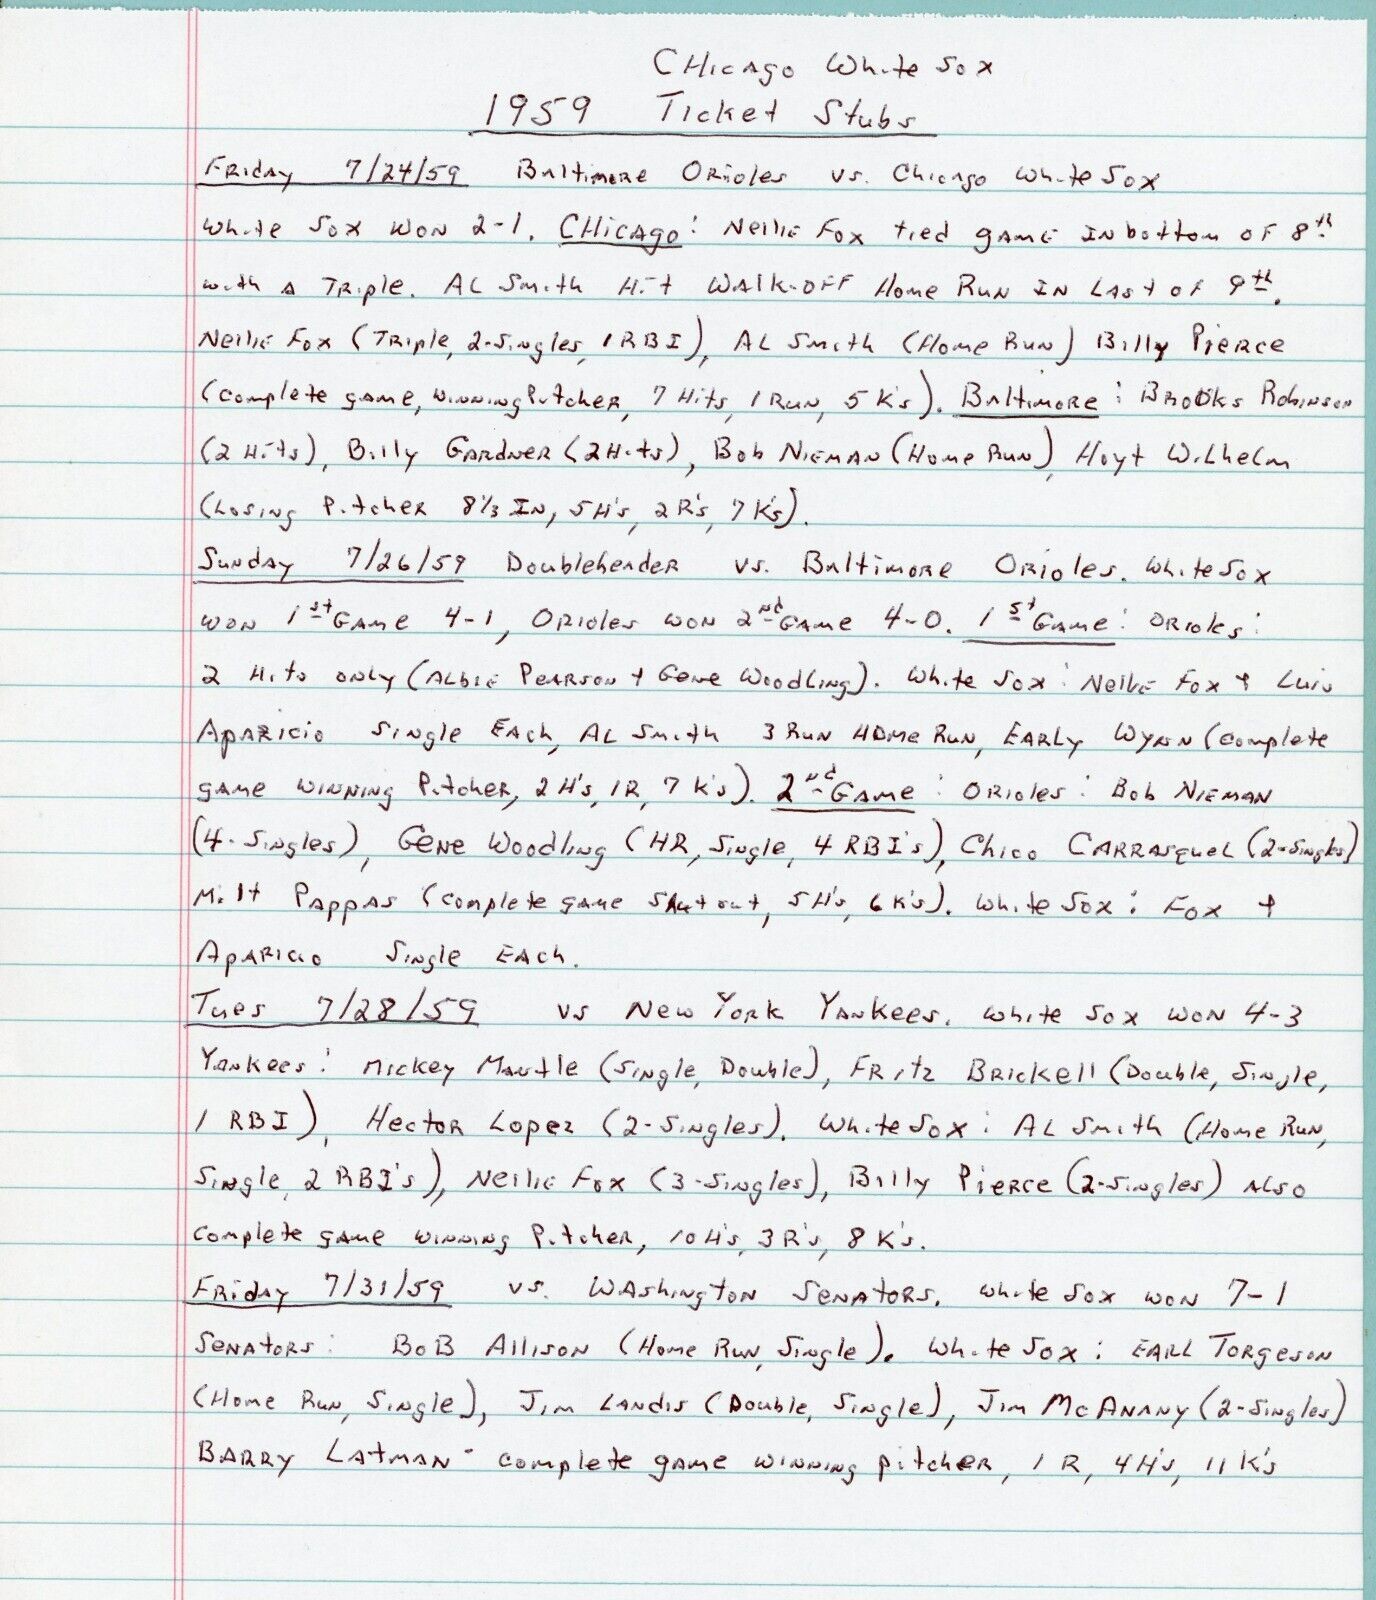 Chicago White Sox
1959 Ticket Stubs
Friday 7/24/59 Baltimore Orioles vs. Chicago White Sox
White Sox won 2-1. Chicago: Nellie Fox tied game in bottom of 8th
with a Triple. Al Smith Hit Walk-off Home Run in Last of 9th.
Nellie Fox (Triple, 2-Singles, 1 RBI), Al Smith (Home Run) Billy Pierce
(complete game, winning Pitcher, 7 Hits, 1 Run, 5 K's). Baltimore: Brooks Robinson
(2 Hits), Billy Gardner (2 Hits), Bob Nieman (Home Run), Hoyt Wilhelm
(Losing Pitcher 8 1/3 In, 5 H's, 2 R's, 7 K's).
Sunday 7/26/59 Doubleheader vs. Baltimore Orioles. White Sox
won 1st Game 4-1, Orioles won 2nd Game 4-0. 1st Game: Orioles:
2 Hits only (Albie Pearson + Gene Woodling). White Sox: Nellie Fox + Luis
Aparicio Single Each, Al Smith 3 Run Home Run, Early Wynn (complete
game winning Pitcher, 2 H's, 1R, 7 K's). 2nd Game: Orioles: Bob Nieman
(4-Singles), Gene Woodling (HR, Single, 4 RBI's), Chico Carrasquel (2-Singles)
Milt Pappas (complete game Shut out, 5 H's, 6 K's). White Sox: Fox +
Aparicio Single Each.
Tues 7/28/59 vs New York Yankees. White Sox won 4-3
Yankees: Mickey Mantle (Single, Double), Fritz Brickell (Double, Single,
1 RBI), Hector Lopez (2-Singles). White Sox: Al Smith (Home Run,
Single, 2 RBI's), Nellie Fox (3-Singles), Billy Pierce (2-Singles) also
complete game winning Pitcher, 10 H's, 3 R's, 8 K's.
Friday 7/31/59 vs. Washington Senators. White Sox won 7-1
Senators: Bob Allison (Home Run, Single). White Sox: Earl Torgeson
(Home Run, Single), Jim Landis (Double, Single), Jim McAnany (2-Singles)
Barry Latman - complete game winning pitcher, 1 R, 4 H's, 11 K's